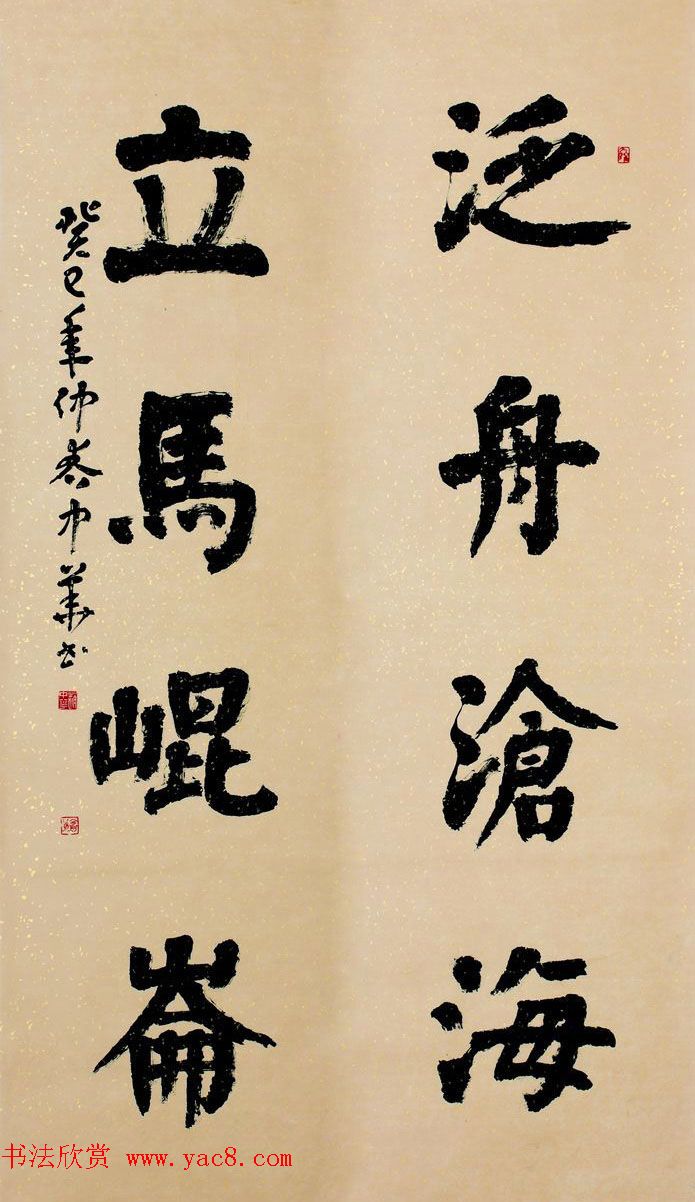 泛舟滄海
立馬崐崙
癸巳年仲春中華書
书法欣赏 www.yac8.com